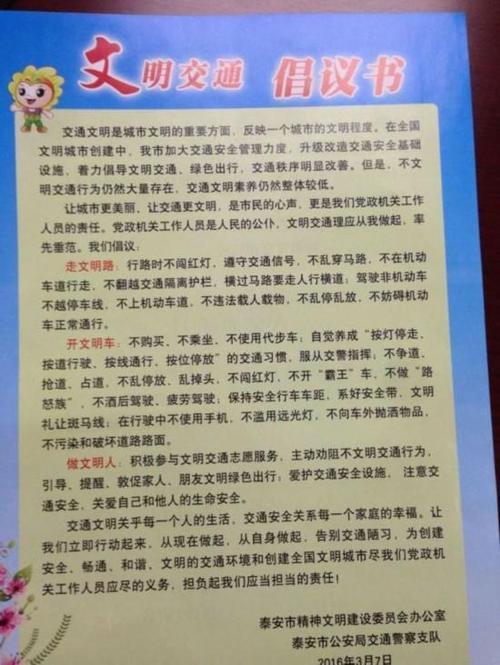 文明交通 倡议书
交通文明是城市文明的重要方面，反映一个城市的文明程度。在全国
文明城市创建中，我市加大交通安全管理力度，升级改造交通安全基础
设施，着力倡导文明交通、绿色出行，交通秩序明显改善。但是，不文
明交通行为仍然大量存在，交通文明素养仍然整体较低。
让城市更美丽、让交通更文明，是市民的心声，更是我们党政机关工作
人员的责任。党政机关工作人员是人民的公仆，文明交通理应从我做起，率
先垂范。我们倡议：
走文明路：行路时不闯红灯，遵守交通信号，不乱穿马路，不在机动
车道行走，不翻越交通隔离护栏，横过马路要走人行横道；驾驶非机动车
不越停车线，不上机动车道，不违法载人载物，不乱停乱放，不妨碍机动
车正常通行。
开文明车：不购买、不乘坐、不使用代步车；自觉养成“按灯停走，
按道行驶、按线通行，按位停放”的交通习惯，服从交警指挥；不争道、
抢道、占道，不乱停放、乱掉头，不闯红灯，不开“霸王”车，不做“路
怒族”，不酒后驾驶、疲劳驾驶；保持安全行车车距，系好安全带，文明
礼让斑马线；在行驶中不使用手机，不滥用远光灯，不向车外抛洒物品，
不污染和破坏道路路面。
做文明人：积极参与文明交通志愿服务，主动劝阻不文明交通行为，
引导、提醒、敦促家人、朋友文明绿色出行；爱护交通安全设施， 注意交
通安全，关爱自己和他人的生命安全。
交通文明关乎每一个人的生活，交通安全关系每一个家庭的幸福。让
我们立即行动起来，从现在做起，从自身做起，告别交通陋习，为创建
安全、畅通、和谐、文明的交通环境和创建全国文明城市尽我们党政机
关工作人员应尽的义务，担负起我们应当担当的责任！
泰安市精神文明建设委员会办公室
泰安市公安局交通警察支队
2016年3月7日